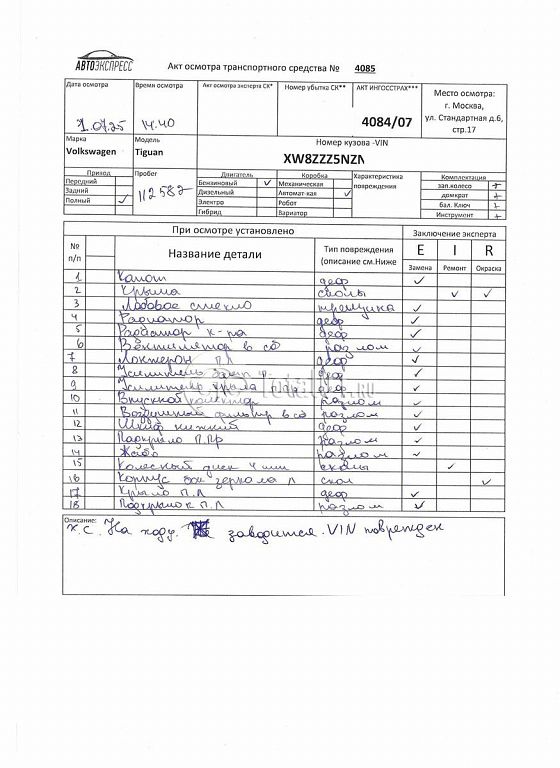 АВТОЭКСПРЕСС
Акт осмотра транспортного средства № 4085
Дата осмотра
Время осмотра
Акт осмотра эксперта СК*
Номер убытка СК**
АКТ ИНГОССТРАХ***
Место осмотра:
г. Москва,
ул. Стандартная д.6,
стр.17
14.40
4084/07
Марка
Volkswagen
Модель
Tiguan
Номер кузова -VIN
XW8ZZZ5NZN
Приход
Передний
Задний
Полный ✓
Пробег
112587
Двигатель
Бензиновый ✓
Дизельный
Электро
Гибрид
Коробка
Механическая
Автомат-кая ✓
Робот
Вариатор
Характеристика
повреждения
Комплектация
зап.колесо +
домкрат +
бал. Ключ +
Инструмент +
При осмотре установлено
Заключение эксперта
№
п/п
Название детали
Тип повреждения
(описание см.Ниже
E I R
Замена Ремонт Окраска
1 Капот деф ✓
2 Крыша сколы ✓ ✓
3 Лобовое стекло трещина ✓
4 Радиатор деф ✓
5 Радиатор к-ра деф ✓
6 Вентилятор в сб разлом ✓
7 Лонжерон П Л деф ✓
8 деф ✓
9 Усилитель крыла деф ✓
10 Впускной разлом ✓
11 Воздушный фильтр в сб разлом ✓
12 нижний деф ✓
13 П.Пр разлом ✓
14 Жабо разлом ✓
15 Колесный диск 4 шт сколы ✓
16 Корпус зеркала Л скол ✓
17 Крыло П.Л деф ✓
18 Подкрылок П.Л разлом ✓
Описание:
х.с. На ходу. заводится. VIN поврежден